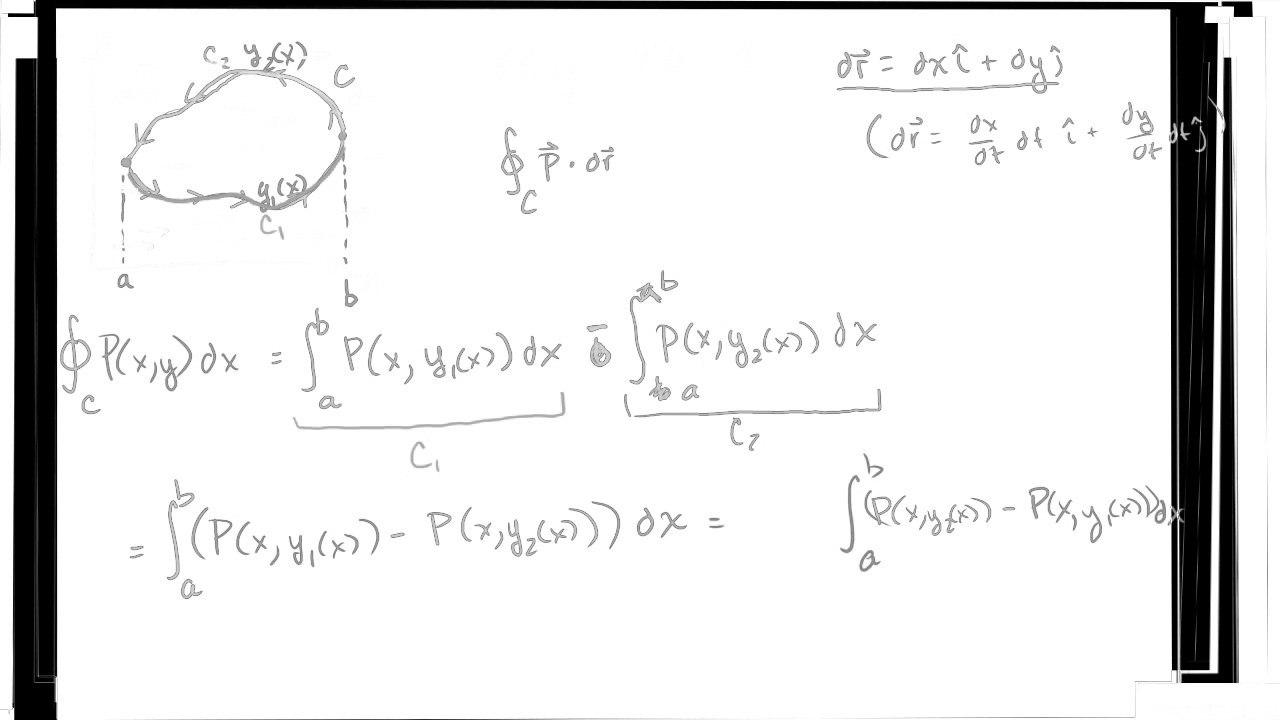 C₂ y₂(x)
C
y₁(x)
C₁
a
b
∮_C P⃗ · dr⃗
dr⃗ = dx î + dy ĵ
(dr⃗ = dx/dt dt î + dy/dt dt ĵ)
∮_C P(x,y) dx = ∫_a^b P(x, y₁(x)) dx − ∫_a^b P(x, y₂(x)) dx
C₁
C₂
= ∫_a^b (P(x, y₁(x)) − P(x, y₂(x))) dx =
∫_a^b (P(x, y₂(x)) − P(x, y₁(x))) dx